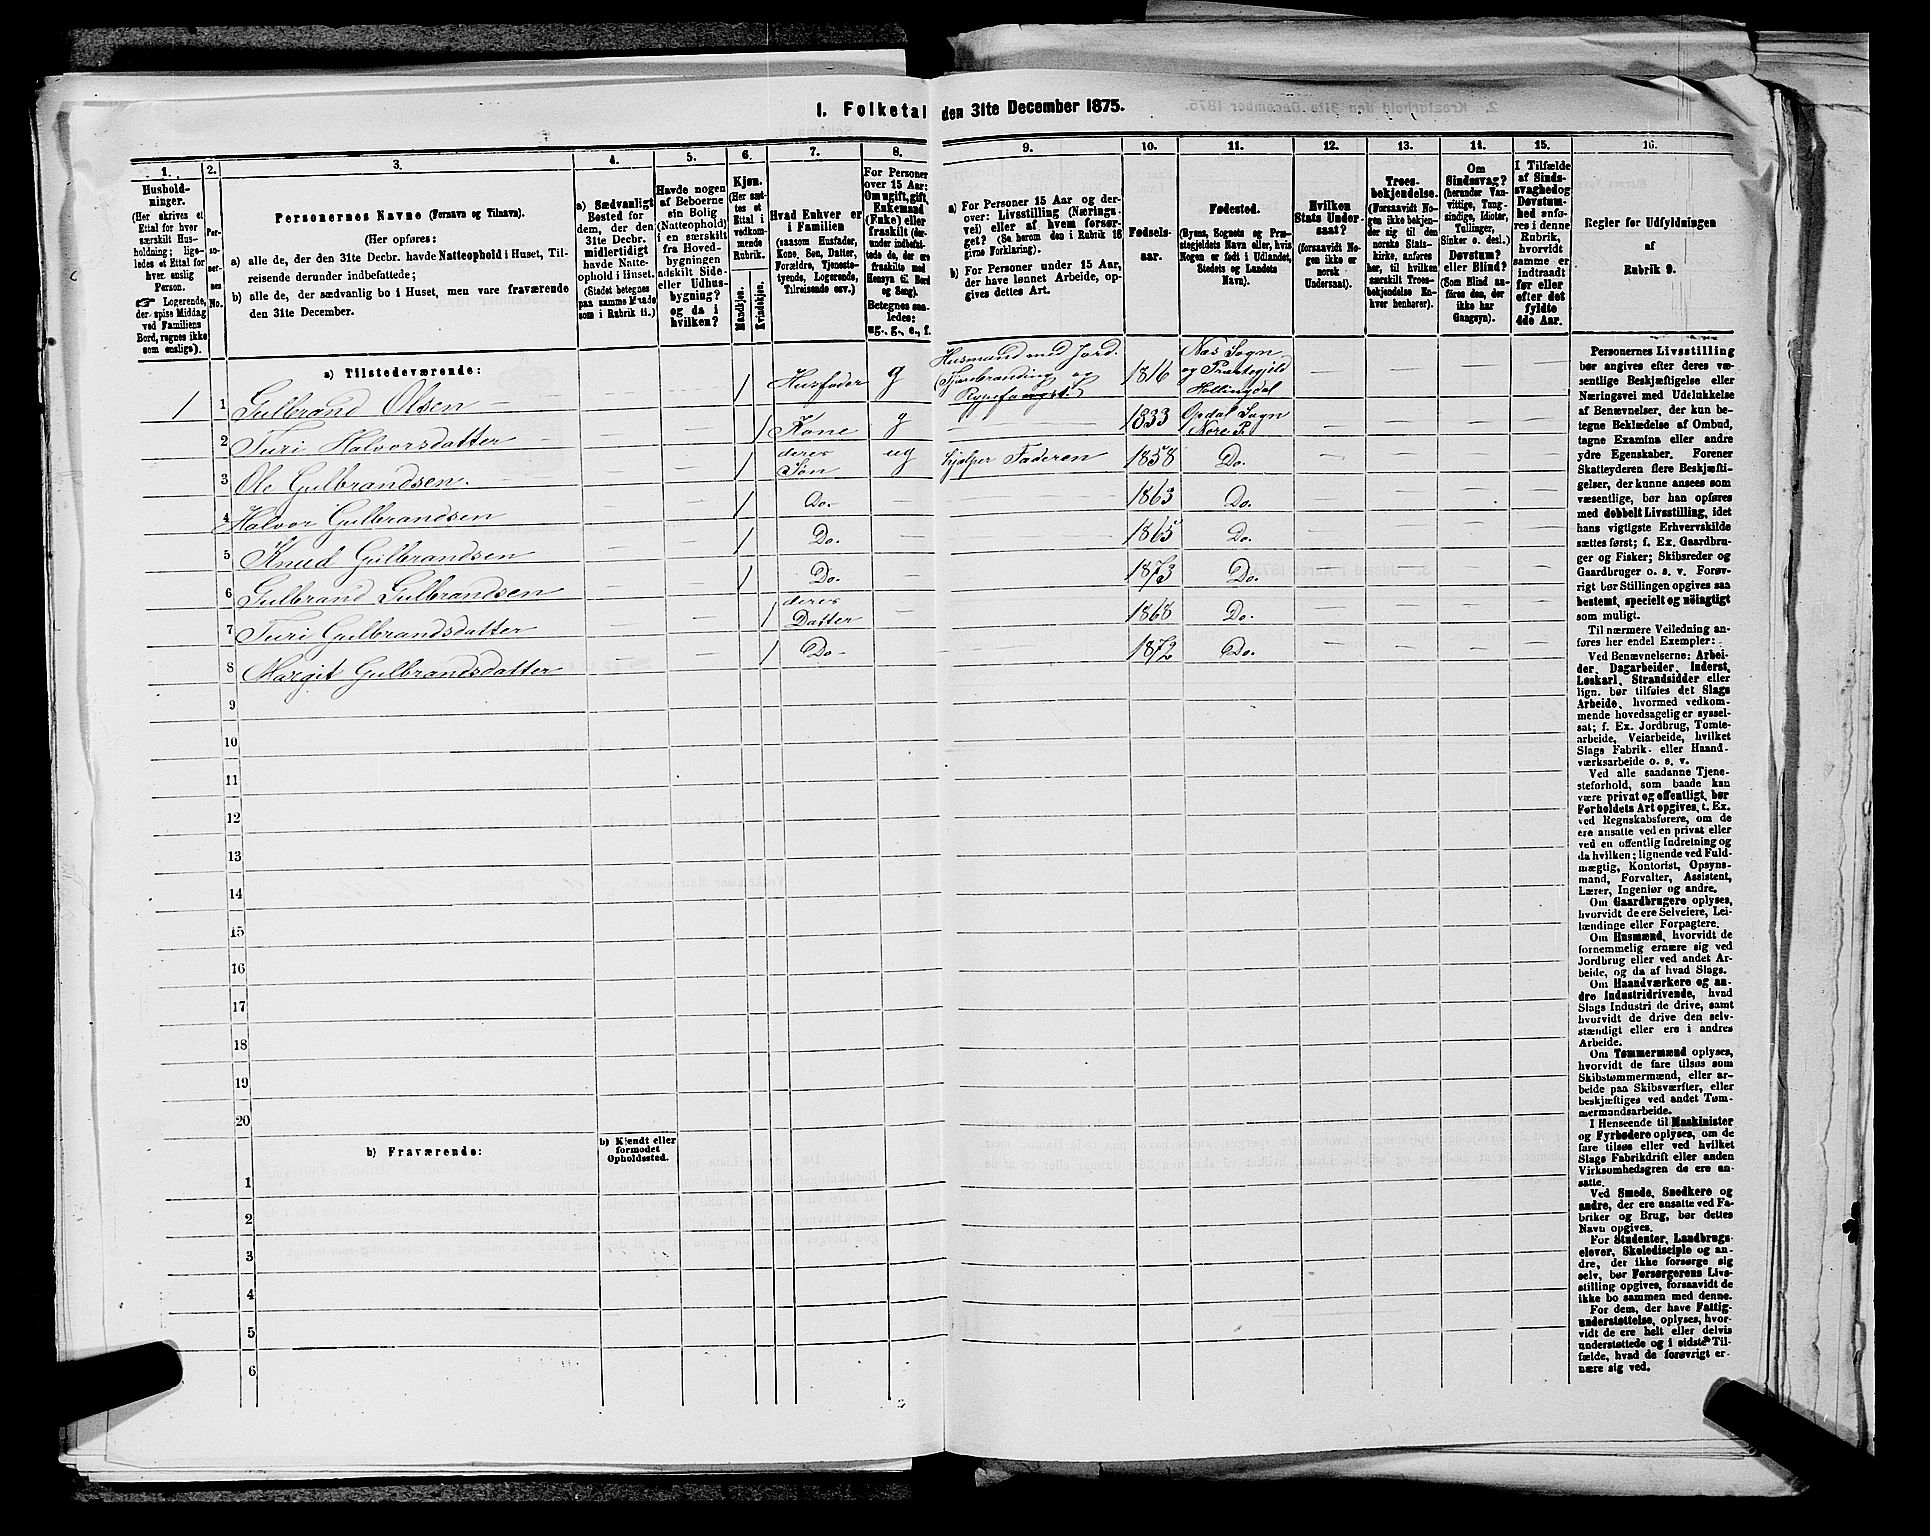 1. Folketal den 31te December 1875.
1. 2. 3. 4. 5. 6. 7. 8. 9. 10. 11. 12. 13. 14. 15. 16.
Husholdninger.
(Her skrives et
Ettal for hver
særskilt Husholdning;
ligeledes et Ettal for
hver enslig
Person.
Logerende,
der spise Middag
ved Familiens
Bord, regnes ikke
som enslige).
Personernes No.
Personernes Navne (Fornavn og Tilnavn).
(Her opføres:
a) alle de, der den 31te Decbr. havde Natteophold i Huset, Tilreisende derunder indbefattede;
b) alle de, der sædvanlig bo i Huset, men vare fraværende
den 31te December.
a) Sædvanligt
Bosted for
dem, der den
31te Decbr.
midlertidigt
havde Natteophold i Huset.
(Stedet betegnes
paa samme Maade
som i Rubrik 11.)
Havde nogen
af Beboerne
ein Bolig
(Natteophold)
i en særskilt
fra Hovedbygningen
adskilt Side-
eller Udhusbygning?
og da i
hvilken?
Kjøn.
(Her sættes et
Ettal i
vedkommende
Rubrik.
Mandkjøn.
Kvindekjøn.
Hvad Enhver er
i Familien
(saasom Husfader,
Kone, Søn, Datter,
Forældre, Tjenestetyende, Logerende,
Tilreisende osv.)
For Personer
over 15 Aar:
Om ugift, gift,
Enkemand
(Enke) eller
fraskilt (derunder indbefattede de, der ere
fraskilte med
Hensyn til Bord
og Seng).
Betegnes saaledes:
ug., g., e., f.
a) For Personer 15 Aar og derover: Livsstilling (Næringsvei) eller af hvem forsørget? (Se herom den i Rubrik 16
givne Forklaring).
b) For Personer under 15 Aar,
der have lønnet Arbeide, opgives dettes Art.
Fødselsaar.
Fødested.
(Byens, Sognets og Præstegjeldets Navn eller, hvis
Nogen er født i Udlandet,
Stedets og Landets
Navn).
Hvilken
Stats Undersaat?
(forsaavidt Nogen ikke er
norsk
Undersaat).
Troesbekjendelse.
(Forsaavidt Nogen ikke bekjender sig til den
norske Statskirke, anføres
her, til hvilken
særskilt Troesbekjendelse Enhver henhører).
Om
Sindssvag?
(herunder Vanvittige, Tungsindige, Idioter,
Tullinger,
Sinker o. desl.)
Døvstum?
eller Blind?
(Som Blind anføres den, der
ikke har
Gangsyn).
I Tilfælde
af Sindssvaghed og
Døvstumhed anføres i denne
Rubrik,
hvorvidt
samme er
indtraadt
før eller
efter det
fyldte
4de Aar.
Regler for Udfyldningen
af
Rubrik 9.
a) Tilstedeværende:
1 1 Gulbrand Olsen 1 Husfader g Husmand med Jord. Fjorebranding og Rypefangst. 1816 Næs Sogn og Præstegjeld Hallingdal
2 Turi Halvorsdatter 1 Kone g 1833 Opdal Sogn Nore P.
3 Ole Gulbrandsen. 1 deres Søn ug hjælper Faderen 1858 Do.
4 Halvor Gulbrandsen 1 Do. 1863 Do.
5 Knud Gulbrandsen 1 Do. 1865 Do.
6 Gulbrand Gulbrandsen 1 Do. 1873 Do.
7 Turi Gulbrandsdatter 1 deres Datter 1868 Do.
8 Margit Gulbrandsdatter 1 Do 1872 Do.
9
10
11
12
13
14
15
16
17
18
19
20
b) Fraværende:
b) Kjendt eller
formodet
Opholdssted.
1
2
3
4
5
6
Personernes Livsstilling
bør angives efter deres væsentlige Beskjæftigelse eller
Næringsvei med Udelukkelse
af Benævnelser, der kun betegne Beklædelse af Ombud,
tagne Examina eller andre
ydre Egenskaber. Forener
Skatteyderen flere Beskjæftigelser, der kunne ansees som
væsentlige, bør han opføres
med dobbelt Livsstilling, idet
hans vigtigste Erhvervskilde
sættes først; f. Ex. Gaardbruger og Fisker; Skibsreder og
Gaardbruger o. s. v. Forøvrigt bør Stillingen opgives saa
bestemt, specielt og nøiagtigt
som muligt.
Til nærmere Veiledning anføres her endel Exempler:
Ved Benævnelserne: Arbeider, Dagarbeider, Inderst,
Løskarl, Strandsidder eller
lign. bør tilføies det Slags
Arbeide, hvormed vedkommende hovedsagelig er sysselsat; f. Ex. Jordbrug, Tomtearbeide, Veiarbeide, hvilket
Slags Fabrik- eller Haandværksarbeide o. s. v.
Ved alle saadanne Tjenesteforhold, som baade kan
være privat og offentligt, bør
Forholdets Art opgives, t. Ex.
ved Regnskabsførere, om de
ere ansatte ved en privat eller
ved en offentlig Indretning og
da hvilken; lignende ved Fuldmægtig, Kontorist, Opsynsmand, Forvalter, Assistent,
Lærer, Ingeniør og andre.
Om Gaardbrugere oplyses,
hvorvidt de ere Selveiere, Leilændinge eller Forpagtere.
Om Husmænd, hvorvidt de
fornemmelig ernære sig ved
Jordbrug eller ved andet Arbeide, og da af hvad Slags.
Om Haandværkere og andre Industridrivende, hvad
Slags Industri de drive, samt
hvorvidt de drive den selvstændigt eller ere i andres
Arbeide.
Om Tømmermænd oplyses,
hvorvidt de fare tilsøs som
Skibstømmermænd, eller arbeide paa Skibsværfter, eller
beskjæftiges ved andet Tømmermandsarbeide.
I Henseende til Maskinister
og Fyrbødere oplyses, om de
fare tilsøs eller ved hvilket
Slags Fabrikdrift eller anden
Virksomhedsgren de ere ansatte.
Ved Smede, Snedkere og
andre, der ere ansatte ved Fabriker og Brug, bør dettes
Navn opgives.
For Studenter, Landbrugselever, Skoledisciple og andre, der ikke forsørge sig
selv, bør Forsørgerens Livsstilling opgives, forsaavidt de
ikke bo sammen med denne.
For dem, der have Fattigunderstøttelse, oplyses, hvorvidt de ere helt eller delvis
understøttede og i sidste Tilfælde, hvad de forøvrigt ernære sig ved.